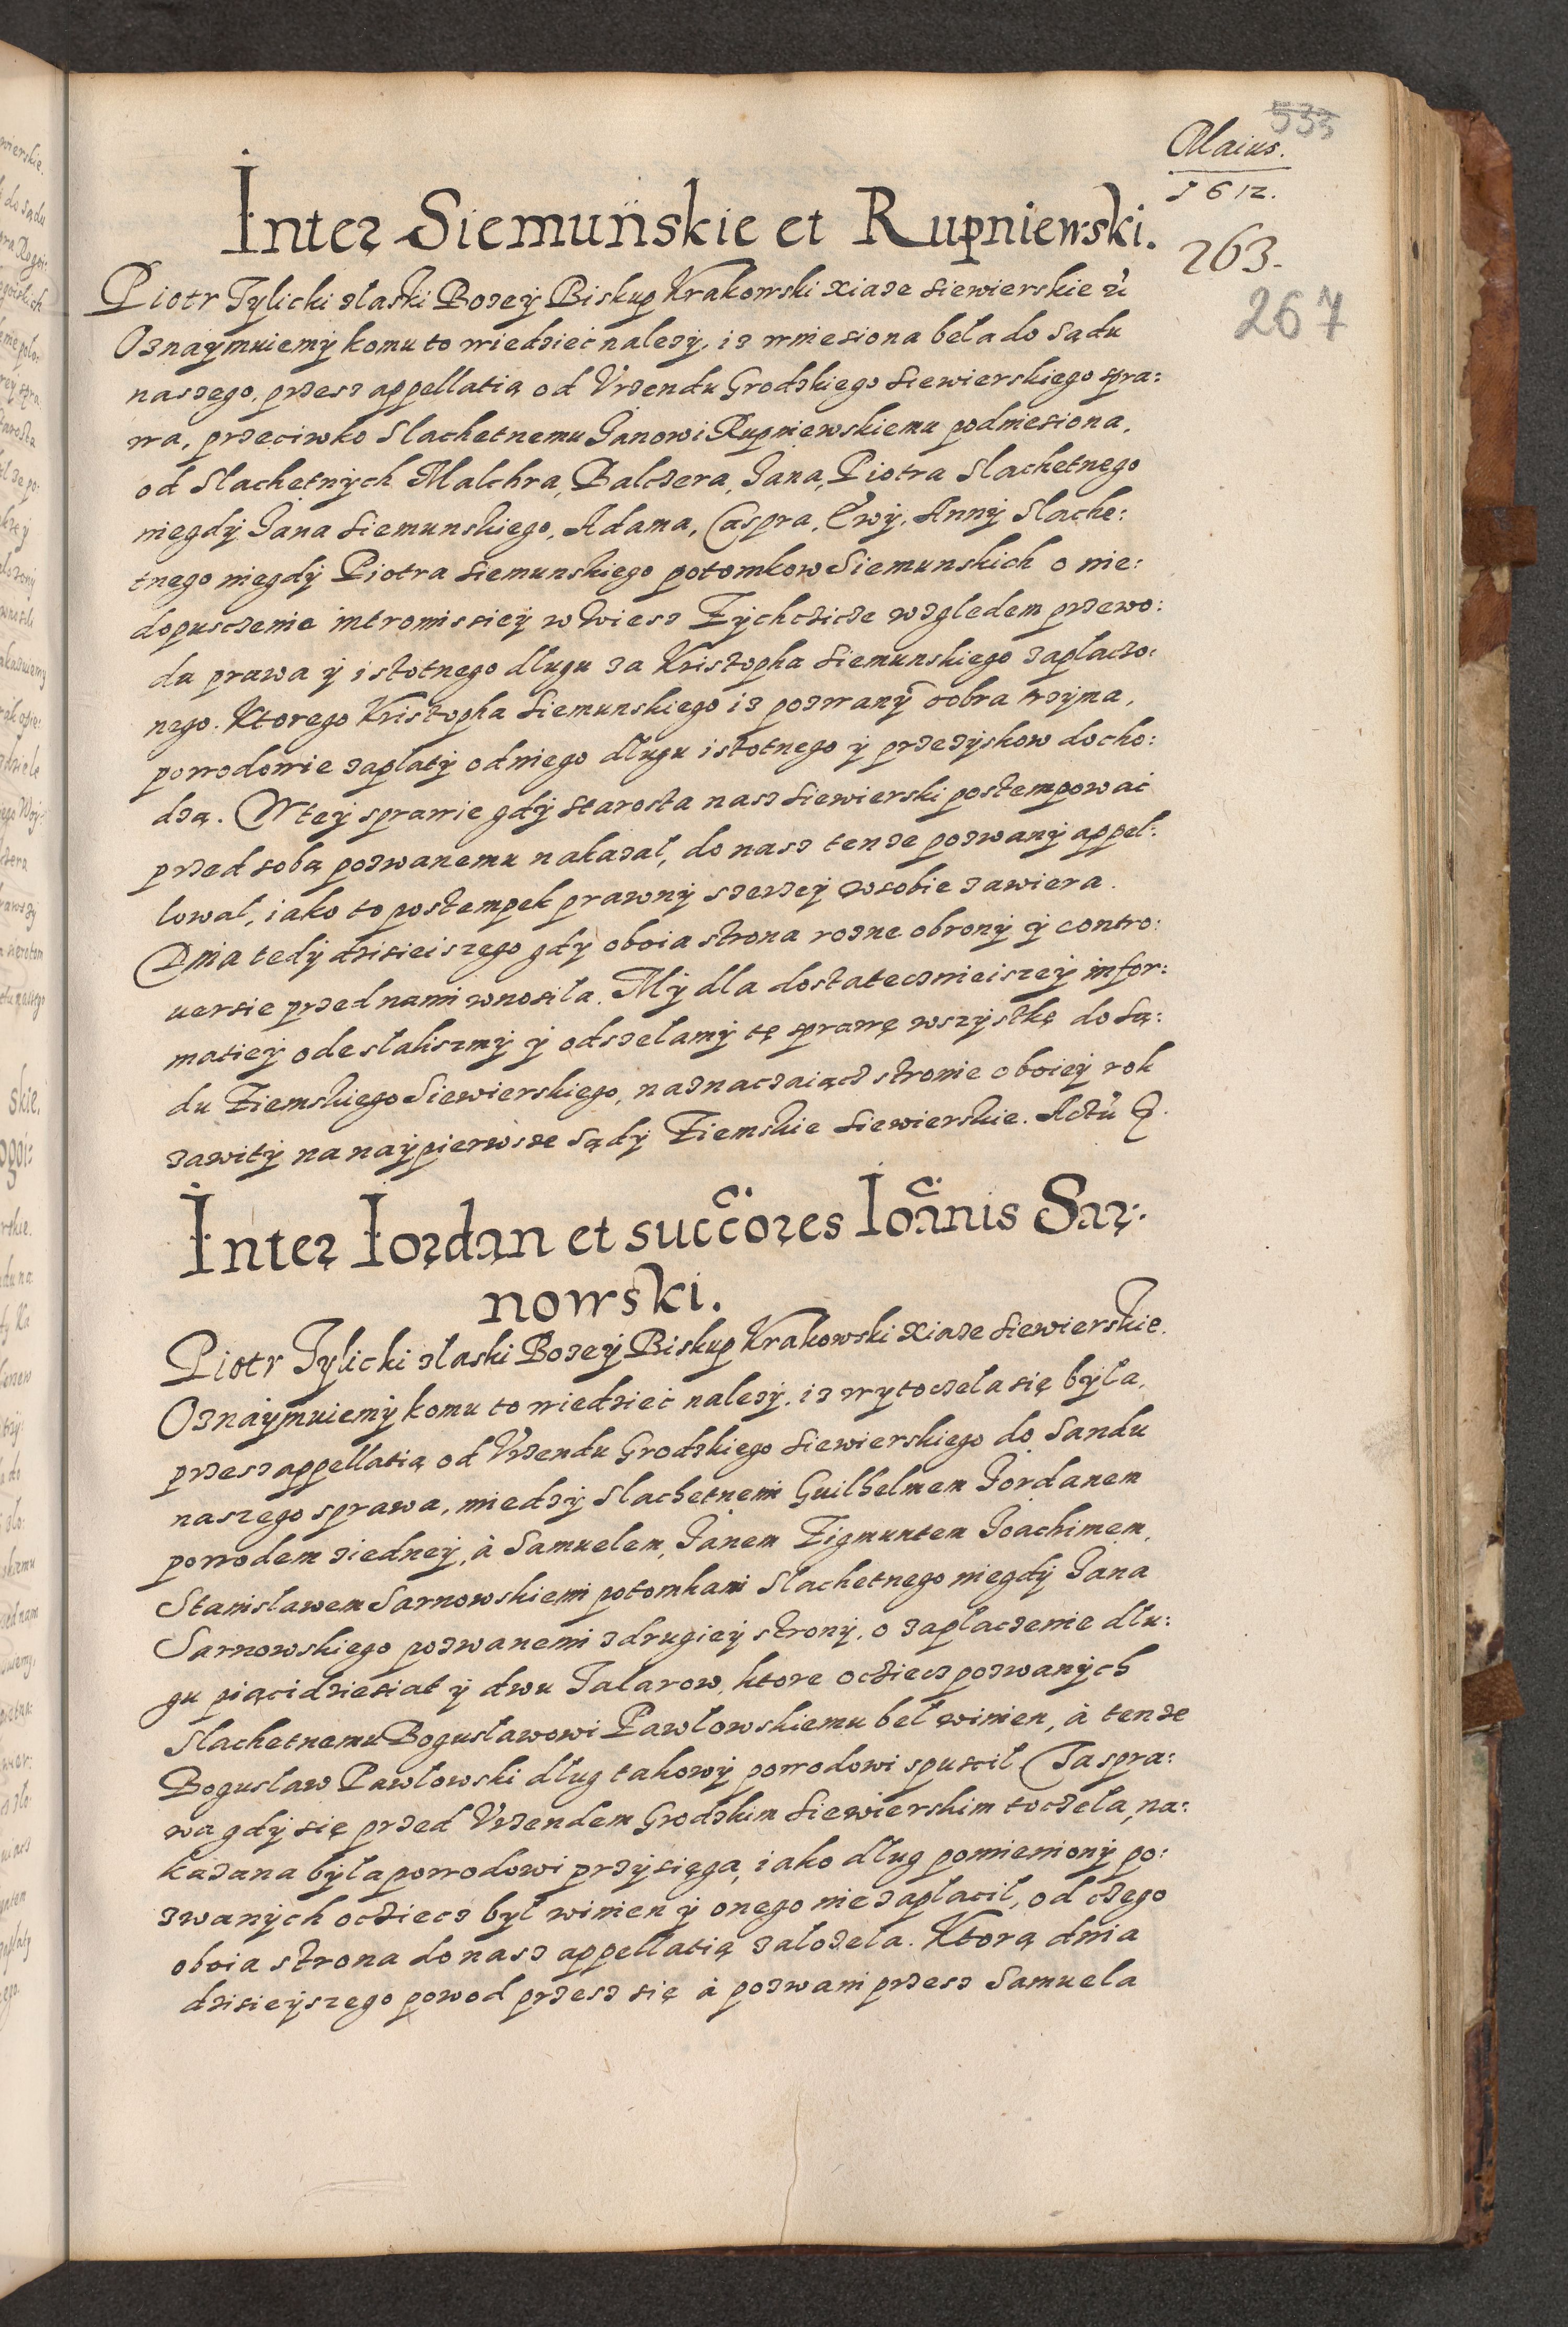 533
Maius.
1612.
263.
267
Inter Siemuńskie et Rupniewski.
Piotr Tylicki z łaski Bozey Biskup Krakowski xiaze Siewierskie
Oznaymuiemy komu to wiedzieć nalezy, iz wniesiona beła do Sądu
naszego, przez appellatią od Vrzendu Grodzkiego Siewierskiego spra:
wa, przeciwko Slachetnemu Janowi Rupniewskiemu podniesiona,
od Slachetnych Malchra, Balczera, Jana, Piotra Slachetnego
niegdy Jana Siemunskiego, Adama, Caspra, Ewy, Anny Slache:
tnego niegdy Piotra Siemunskiego potomkow Siemunskich o nie:
dopusczenie intromissiey w Wiesz Zychczicze względem przewo:
du prawa y istotnego długu za Kristopha Siemunskiego zapłaczo:
nego. Ktorego Kristopha Siemunskiego iz pozwany dobra trzyma,
powodowie zapłaty od niego długu istotnego y przezyskow docho:
dzą. W tey sprawie gdy Starosta nasz Siewierski postempować
przed sobą pozwanemu nakazał, do nasz tenze pozwany appel:
lował, iako to postempek prawny szerzey w sobie zawiera.
Dnia tedy dzisieiszego gdy oboia strona rozne obrony y contro:
uersie przed nami wnosiła. My dla dostatecznieiszey infor:
matiey odesłaliszmy y odsełamy tę sprawę wszystkę do Są:
du Ziemskiego Siewierskiego, naznaczaiącz stronie oboiey rok
zawity na naypierwsze Sądy Ziemskie Siewierskie. Actũ
Inter Iordan et succõres Ioãnis Sar:
nowski.
Piotr Tylicki z łaski Bozey Biskup Krakowski xiaze Siewierskie.
Oznaymuiemy komu to wiedzieć nalezy, iz wytoczeła się była,
przez appellatią od Vrzendu Grodzkiego Siewierskiego do Sandu
naszego sprawa, miedzy Slachetnem Guilhelmem Jordanem
powodem ziedney, à Samuelem, Janem Zigmuntem Joachimem,
Stanisławem Sarnowskiemi potomkami Slachetnego niegdy Jana
Sarnowskiego pozwanemi z drugiey strony, o zapłaczenie dłu:
gu piącidziesiat y dwu Talarow, ktore oczciecz pozwanych
Slachetnemu Bogusławowi Pawłowskiemu beł winien, à tenze
Bogusław Pawłowski dług takowy powodowi spuscił Ta spra:
wa gdy się przed Vrzendem Grodzkim Siewierskim toczeła, na:
kazana była powodowi przysięga, iako dług pomieniony po:
zwanych oczciecz był winien y onego nie zapłacił, od czego
oboia strona do nasz appellatią załozeła. Ktorą dnia
dzisieyszego powod przez się à pozwani przez Samuela